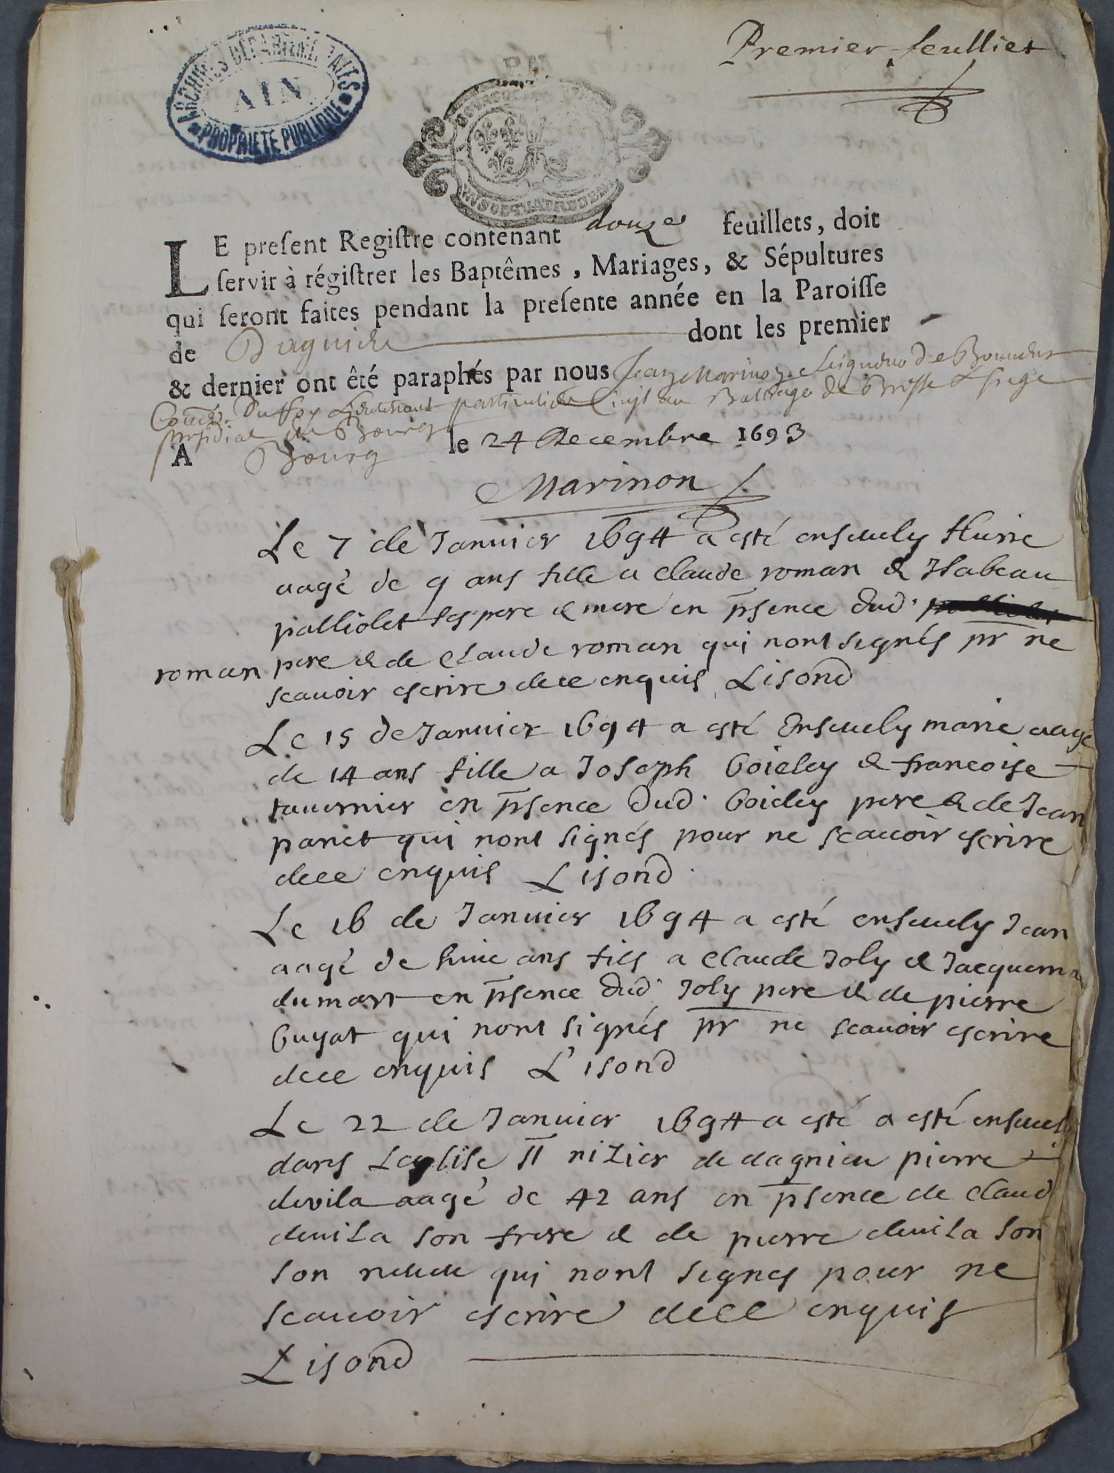 Premier feulliet
ARCHIVES DÉPARTEMENTALES
AIN
PROPRIÉTÉ PUBLIQUE
LE present Registre contenant douze feuillets, doit
servir à régistrer les Baptêmes, Mariages, & Sépultures
qui seront faites pendant la presente année en la Paroisse
de Dagnieu dont les premier
& dernier ont êté paraphés par nous Jean Marinon Seigneur De
Coner. du Roy Lieutenant particulier Civil au Bailliage de Bresse & siege
presidial de Bourg
A Bourg le 24 Decembre 1693
Marinon
Le 7 de Janvier 1694 a esté ensevely
aagé de 9 ans fille a claude roman & Isabeau
palliolet ses pere & mere en psence dud.
roman pere & de claude roman qui nont signés pr ne
scavoir escrire de ce enquis Lisond
Le 15 de Janvier 1694 a esté Ensevely marie aagé
de 14 ans fille a Joseph Goiley & francoise
tavernier en psence dud. Goiley pere & de Jean
panet qui nont signés pour ne scavoir escrire
de ce enquis Lisond.
Le 16 de Janvier 1694 a esté ensevely Jean
aagé de huit ans fils a claude Joly & Jacquema
dumart en psence dud. Joly pere & de pierre
Guyat qui nont signés pr ne scavoir escrire
de ce enquis L'isond
Le 22 de Janvier 1694 a esté a esté ensevel
dans Leglise St nizier de dagnieu pierre
devila aagé de 42 ans en psence de claud
devila son frere & de pierre devila son
son neveu qui nont signes pour ne
scavoir escrire de ce enquis
Lisond